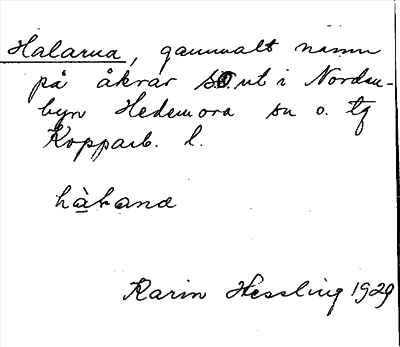 Halarna, gammalt namn
på åkrar s.o. ut i Nordan-
byn Hedemora sn o. tg
Kopparb. l.
hàƚana
Karin Hessling 1929